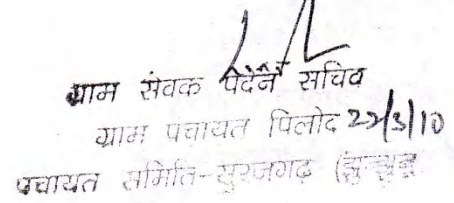 ग्राम सेवक पदेन सचिव
ग्राम पंचायत पिलोद 22/3/10
पंचायत समिति-सुरजगढ़ (झुन्झुनू